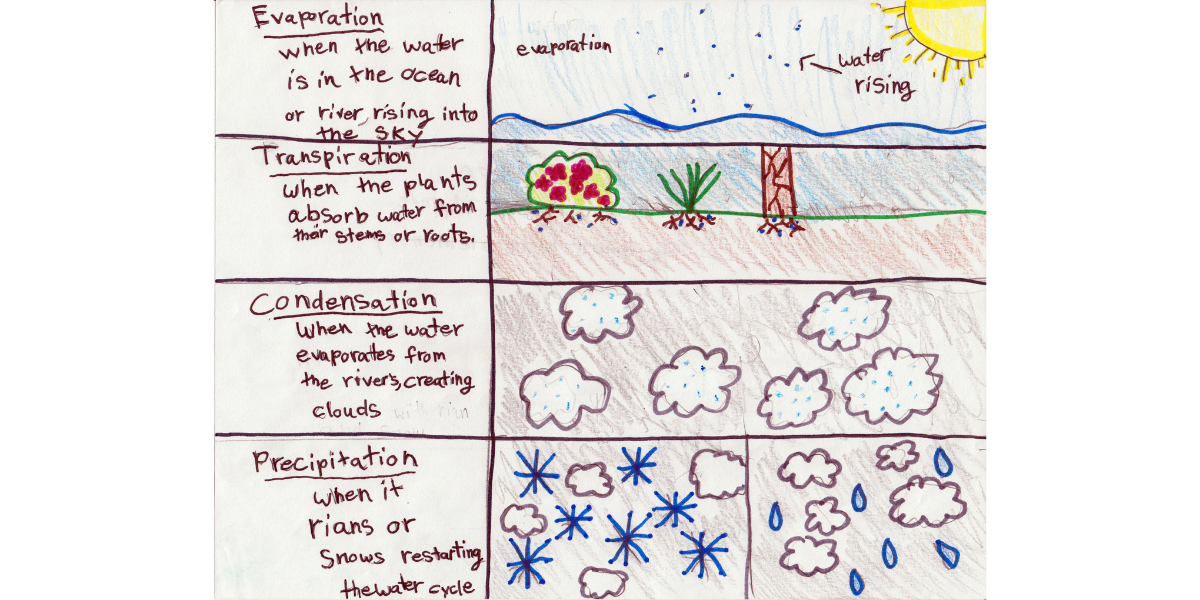 Evaporation
when the water
is in the ocean
or river, rising into
the sky
evaporation
water
rising
Transpiration
when the plants
absorb water from
their stems or roots.
Condensation
when the water
evaporates from
the rivers, creating
clouds with rian
Precipitation
when it
rians or
snows restarting
the water cycle